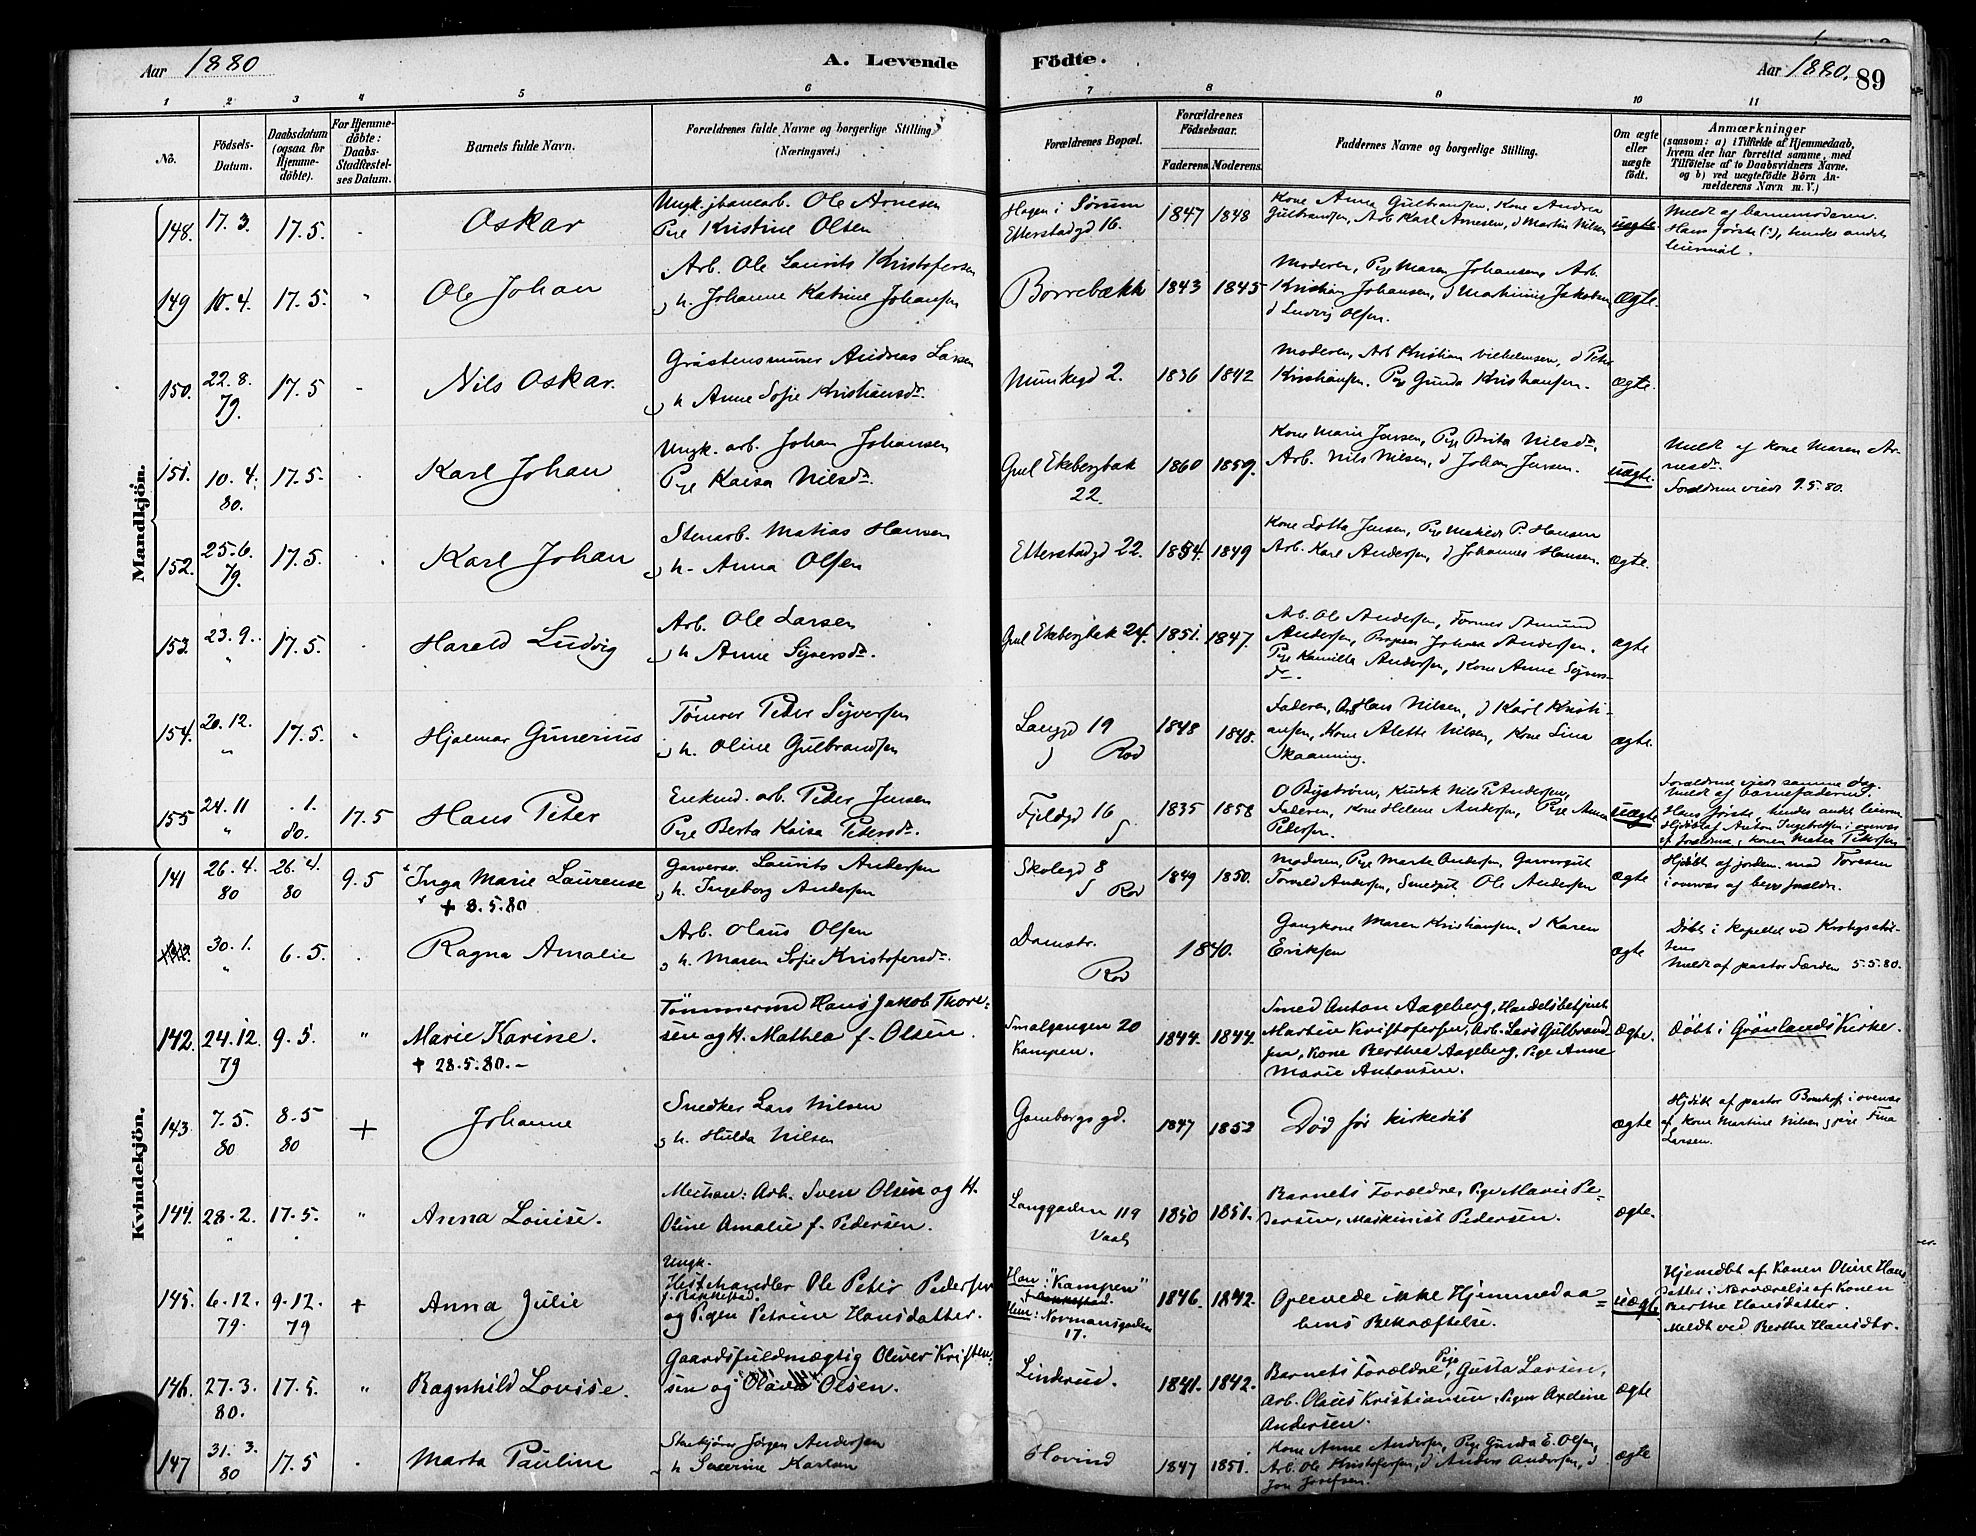 Aar 1880
A. Levende
Födte.
Aar 1880.
89
1 2 3 4 5 6 7 8 9 10 11
No.
Födsels-
Datum.
Daabsdatum
(ogsaa for
Hjemme-
döbte).
For Hjemme-
döbte:
Daabs-
Stadfæstel-
ses Datum.
Barnets fulde Navn.
Forældrenes fulde Navne og borgerlige Stilling
(Næringsvei.)
Forældrenes Bopæl.
Forældrenes
Födselsaar.
Faderens. Moderens.
Faddernes Navne og borgerlige Stilling.
Om ægte
eller
uægte
født.
Anmærkninger
(saasom: a) i Tilfælde af Hjemmedaab,
hvem der har forrettet samme, med
Tilföielse af to Daabsvidners Navne.
og b) ved uægtefödte Börn An-
melderens Navn m. V.)
Mandkjön.
148. 17.3. 17.5. Oskar
Ungk. jbanearb. Ole Arnesen
Pige Kristine Olsen
Hagen i Sørum
Etterstadgd 16.
1847 1848
Kone Anna Gulbransen, Kone Andrea
Gulbransen, Arb Karl Arnesen, d Martin Nilsen
uægte
Meldt af barnemoderen.
Hans første (?), hendes andet
leiermaal.
149 10.4. 17.5. Ole Johan
Arb. Ole Laurits Kristofersen
o h. Johanne Katrine Johansen
Borrebækk 1843 1845
Moderen, Pige Maren Johansen, Arb.
Kristian Johansen, d Martinius Jakobsen
d Ludvig Olsen.
ægte.
150. 22.8. 79. 17.5 Nils Oskar.
Gråstensmurer Andreas Larsen
o h Anne Sofie Kristiansdr.
Munkegd 2. 1836 1842
Moderen, Arb Kristian Vilhelmsen, d Peter
Kristiansen. Pige Gunda Kristiansen.
ægte.
151. 10.4. 80. 17.5. Karl Johan
Ungk. arb. Johan Johansen
Pige Kaisa Nilsdr.
Grul Ekebergbak
22.
1860 1859.
Kone Marie Jensen, Pige Brita Nilsdr,
Arb. Nils Nilsen, d Johan Jensen.
uægte.
Meldt af kone Maren Ar-
nesdr.
Forældrene viede 9.5.80.
152. 25.6. 79. 17.5. Karl Johan
Stenarb. Matias Hansen
o h. Anna Olsen
Etterstadgd 22. 1854. 1849
Kone Lotta Jensen, Pige Matilde P. Hansen
Arb. Karl Andersen, d Johannes Hansen.
ægte.
153. 23.9. " 17.5. Harald Ludvig
Arb. Ole Larsen
o h Anne Syversdr.
Grul Ekebergbak 24. 1851. 1847.
Arb. Ole Andersen, Former Amund
Andersen, Johan Andersen.
Pige Kamilla Andersen, Kone Anne Syvers-
dr.
ægte
154. 20.12. " 17.5. Hjalmar Gunerius
Tömrer Peder Syversen
o h. Oline Gulbrandsen
Langgd 19
Rod
1848 1848.
Faderen, Arb Hans Nilsen, d Karl Kristi-
ansen, Kone Alette Nilsen, Kone Lina
Skaanning.
ægte.
155 24.11 " .1. 80. 17.5 Hans Peter
Enkem. arb. Peter Jensen
Pige Berta Kaisa Petersdr.
Fjeldgd 16 1835 1858
O Byström, Kudsk Nils P Andersen,
Faderen, Kone Helene Andersen, Pige Anna
Pedersen.
uægte
Forældrene viede samme dag.
Meldt af barnefaderen.
Hans første, hendes andet leierm
Hjdöbt af Anton Ingebretsen i overvær
af forældrene, konen Matea Petersen
Kvindekjön.
141 26.4. 80 26.4 80 9.5 "Inga Marie Laurense
" + 8.5.80
Garversv. Laurits Andersen
o h. Ingeborg Andersen
Skolegd 8
Rod
1849 1850.
Moderen, Pige Marte Andersen, Garversvt
Torvald Andersen, Smedsvt. Ole Andersen
ægte
Hjdöbt af jordem. mad Toresen
i overvær af begge forældre.
30.1. " 6.5. Ragna Amalie
Arb. Olaus Olsen
o h. Maren Sofie Kristofersdr.
Damstr.
Rod
1840.
Gangkone Maren Kristiansen, d Karen
Eriksen
ægte
Döbt i kapellet ved Krohgsstöt-
tens
Meldt af pastor Færden 5.5.80.
142. 24.12. 79 9.5. " Marie Karine.
+ 28.5.80.-
Tömmermd Hans Jakob Thore-
sen og H. Mathea f. Olsen.
Smalgangen 20
Kampen.
1844. 1844.
Smed Anton Aageberg, Handelsbetjent
Martin Kristofersen, Arb. Lars Gulbrand
sen, Kone Berthea Aageberg, Pige Anne
Marie Antonsen.
ægte.
Döbt i Grönlands Kirke.
143. 7.5. 80 8.5 80 + Johanne
Snedker Lars Nilsen
o h. Hulda Nilsen
Ganeborgs gd. 1847 1852
Död för kirkedåb
ægte
Hjdöbt af pastor Bomhof i overvær
af Kone Martine Nilsen o pige Fina
Larsen.
144. 28.2. " 17.5. " Anna Louise.
Mechan: Arb. Sven Olsen og H.
Oline Amalie f. Pedersen.
Langgaden 119
Vaal
1850 1851.
Barnets Forældre, Pige Marie Pe-
dersen, Maskinist Pedersen.
ægte.
145. 6.12. 79. 9.12. 79 + Anna Julie
Ungk.
Hestehandler Ole Peter Pedersen
f. Rakkestad.
og Pigen Petrine Hansdatter.
Han: "Kampen"
Hun: Normansgaden
17.
1846. 1842.
Oplevede ikke Hjemmedaa-
bens Bekræftelse.
uægte
Hjemdöbt af Konen Oline Hans
datter i Nærværelse af Konen
Berthe Hansdatter.
Meldt ved Berthe Hansdtr.
146. 27.3. 80. 17.5. " Ragnhild Lovise.
Gaardsfuldmægtig Oliver Kristen-
sen og Olava Olsen.
Linderud. 1841. 1842.
Barnets Forældre, Pige Gusta Larsen,
Arb. Olaus Kristiansen, Pigen Axeline
Andersen.
ægte
147 31.3. 80 17.5 Marta Pauline
Jörgen Andersen
o h Severine Karlsen
Hovind 1847 1851.
Kone Anne Andersen, Pige Gunda E. Olsen,
Arb. Ole Kristofersen, d Anders Andersen, d
Jon Josefsen.
ægte